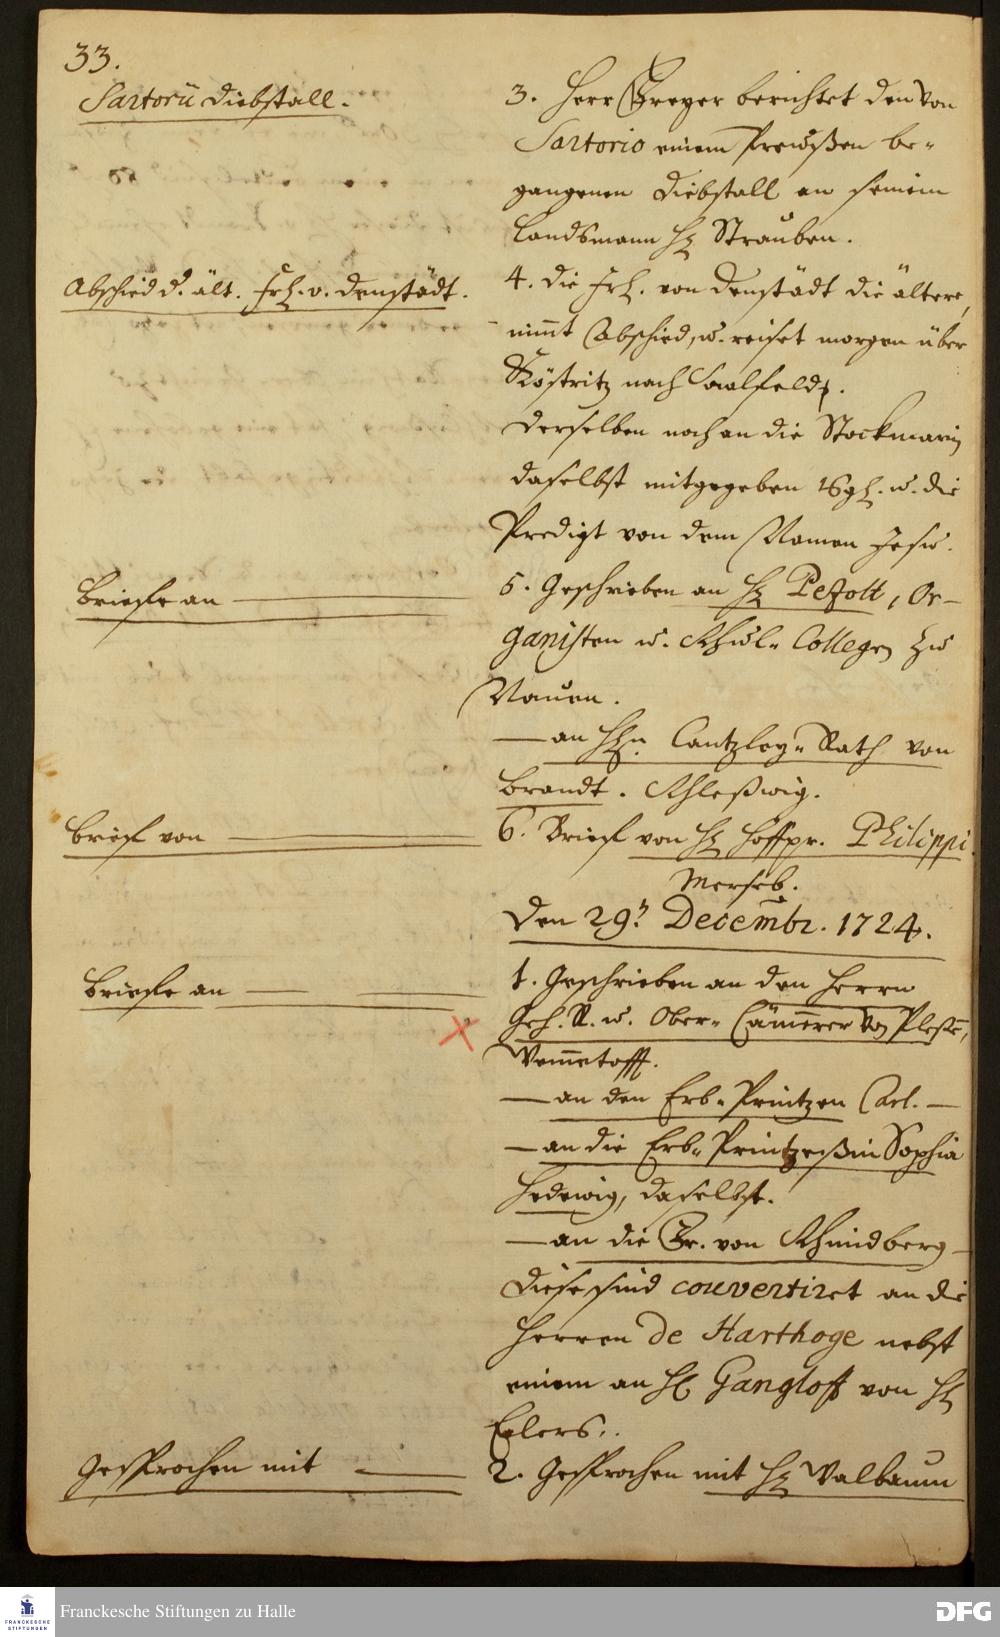 33.
Sartorii Diebstall.
3. Herr Greger berichtet den von
Sartorio einem Preussen be-
gangenen Diebstall an seinem
Landsmann H. Strauben.
Abschied d. ält. Frl. v. Denstädt.
4. Die Frl. von Denstädt die ältere,
nimmt Abschied, u. reiset morgen über
Köstritz nach Saalfeld.
Derselben noch an die Stockmarin
daselbst mitgegeben 16 gl. u. die
Predigt von dem Namen Jesu.
Briefe an
5. Geschrieben an H. Petzolt, Or-
ganisten u. Schul-Collegen zu
Nauen.
— an HEn. Cantzley-Rath von
Brandt. Schleßwig.
Brief von
6. Brief von H. Hoffpr. Philippi
Merseb.
Den 29. Decembr. 1724.
Briefe an
1. Geschrieben an den Herrn
Geh. R. u. Ober-Cämerer von Pleße,
Wemmetofft.
— an den Erb-Printzen Carl. —
— an die Erb-Printzeßin Sophia
Hedewig, daselbst.
— an die Gr. von Schindberg —
Diese sind couvertiret an die
Herren de Harthoge nebst
einem an H. Gangloff von H.
Eelers.
Gesprochen mit
2. Gesprochen mit H. Walbaum
Franckesche Stiftungen zu Halle
FRANCKESCHE
STIFTUNGEN
DFG